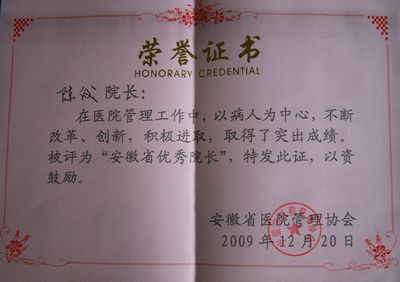 荣誉证书
HONORARY CREDENTIAL
陈 院长：
在医院管理工作中，以病人为中心，不断
改革、创新，积极进取，取得了突出成绩。
被评为“安徽省优秀院长”，特发此证，以资
鼓励。
安徽省医院管理协会
2009 年 12 月 20 日